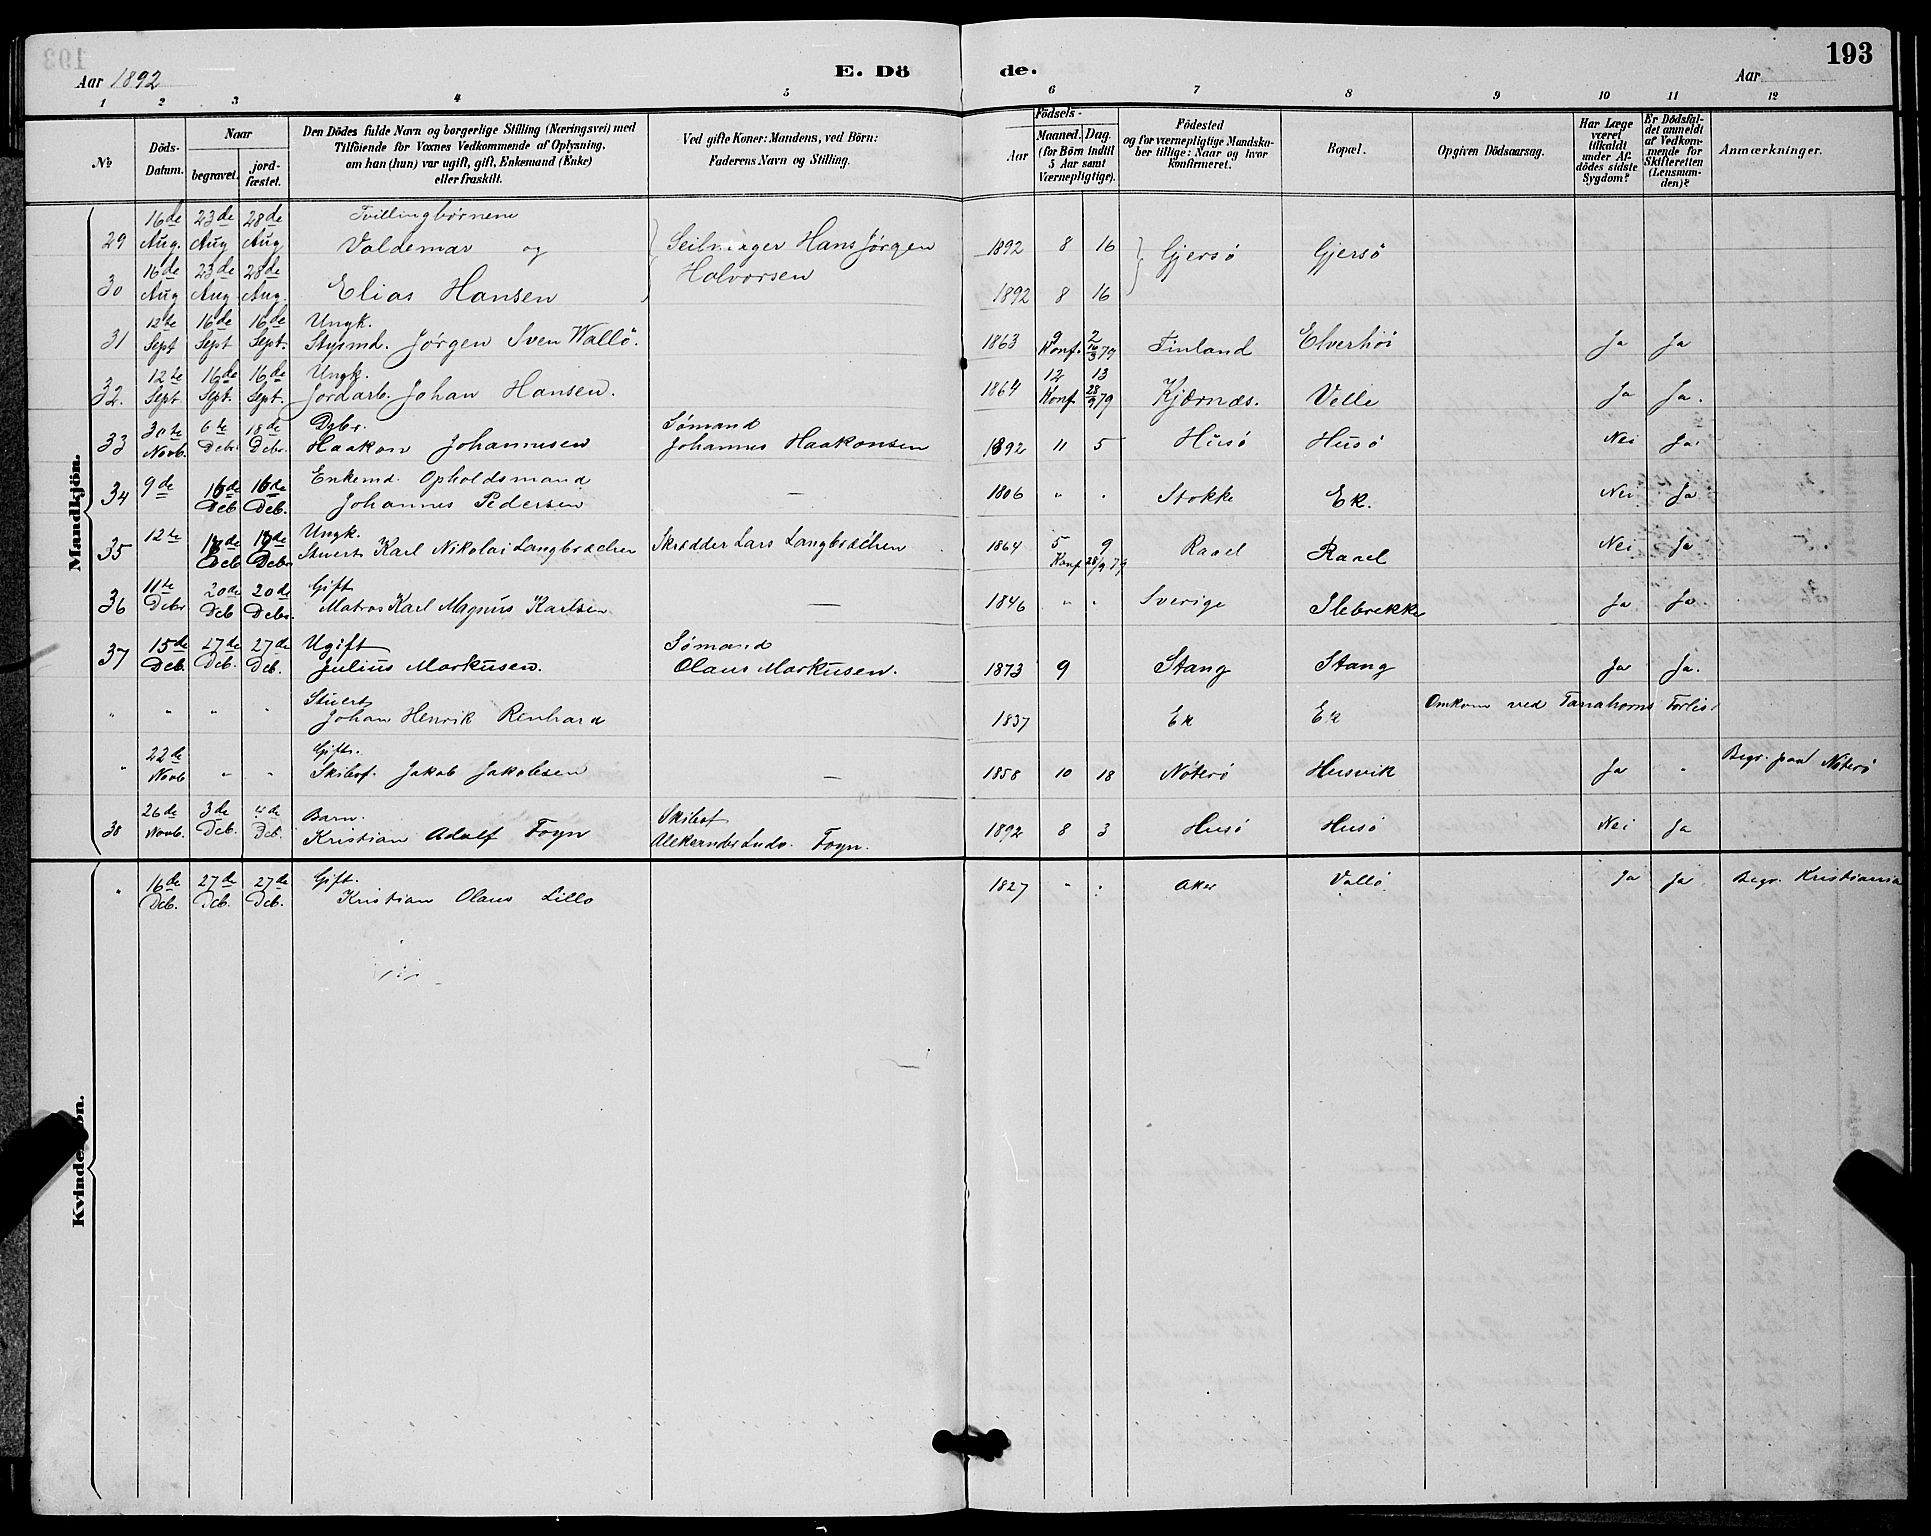 193
Aar 1892
E. Dö de.
Aar
1 2 3 4 5 6 7 8 9 10 11 12
№
Döds-Datum.
Naar
begravet.
jord-fæstet.
Den Dödes fulde Navn og borgerlige Stilling (Næringsvei) med
Tilföiende for Voxnes Vedkommende af Oplysning,
om han (hun) var ugift, gift, Enkemand (Enke)
eller fraskilt.
Ved gifte Koner: Mandens, ved Börn:
Faderens Navn og Stilling.
Födsels-
Aar
Maaned. Dag.
(for Börn indtil
5 Aar samt
Værnepligtige).
Födested
og for værnepligtige Mandska-
ber tillige: Naar og hvor
konfirmeret.
Bopæl.
Opgiven Dödsaarsag.
Har Læge
været
tilkaldt
under Af-
dödes sidste
Sygdom?
Er Dödsfal-
det anmeldt
af Vedkom-
mende for
Skifteretten
(Lensman-
den)?
Anmærkninger.
Mandkjön.
16de 23de 28de Tvillingbørnene
29 Aug. Aug Aug Valdemar og Hans Jørgen 1892 8 16 Gjersø Gjersø
16de 23de 28de Halvorsen
30 Aug Aug Aug. Elias Hansen 1892 8 16
12te 16de 16de Ungk. 9 2
31 Sept Sept Sept. Stysmd. Jørgen Sven Wallö. 1863 Konf. 16/3 79 Finland Elverhöi Ja Ja
12te 16de 16de Ungk. 12 13
32. Sept Sept. Sept. Jordarb. Johan Hansen. 1864 Konf 28/9 79 Kjærnæs. Velle Ja Ja.
30te 6te 18de Dbr. Sømand
33 Novb. Debr. Debr. Haakon Johannesen Johannes Haakonsen 1892 11 5 Husö Husö Nei Ja
9de 16de 16de Enkemd. Opholdsmand
34 Deb Deb. Johannes Pedersen — 1806 " " Stokke Ek. Nei Ja
12te Ungk. 5 9
35 Deb Debr Stuert Karl Nikolai Langbrachen Skrædder Lars Langbrachen 1864 Konf 28/9 79 Rael Rael Nei Ja
11te 20de 20de Gift
36 Debr Deb Debr. Matros Karl Magnus Karlsen — 1846 " " Sverige Slebrekke Ja Ja
15de 27de 27de Ugift Sømand
37 Deb. Deb. Deb. Julius Markusen. Olaus Markusen. 1873 9 Stang Stang Ja Ja.
Stuert
" " " " Johan Henrik Renhard 1837 Ek Ek Omkom ved Forlis
22de Gift.
" Novb " " Skibsf. Jakob Jakobsen — 1858 10 18 Nöterö Husvik Ja " Begr. paa Nöterö
26de 3de 4de Barn. Skibsf
38 Novb. Deb. Deb. Kristian Adolf Foyn Foyn. 1892 8 3 Husö Husö Nei Ja
Kvindekjön.
16de 27de 27de Gift.
" Deb. Deb. Deb. Kristian Olaus Lillo 1827 " " Aker Vallö Ja Ja Begr. Kristiania